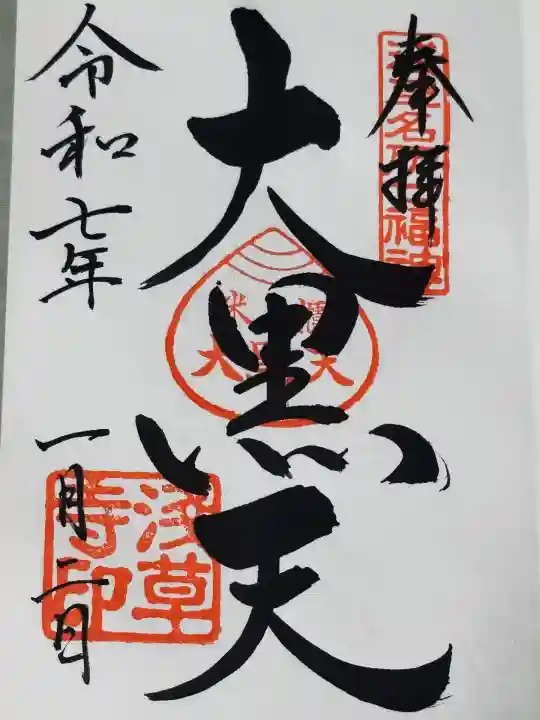 奉拝
浅草名所七福神
大黒天
米櫃
大黒天
令和七年
一月二日
浅草寺印